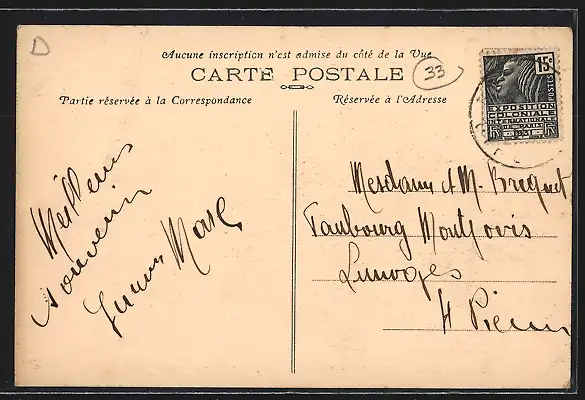 D
Aucune inscription n'est admise du côté de la Vue
CARTE POSTALE
33
Partie réservée à la Correspondance
Réservée à l'Adresse
15c
POSTES
EXPOSITION
COLONIALE
INTERNATIONALE
DE PARIS
1931
RF
Meilleurs
souvenirs
Marc
Mesdames & M. Breguet
Faubourg Montjovis
Limoges
Hte Vienne